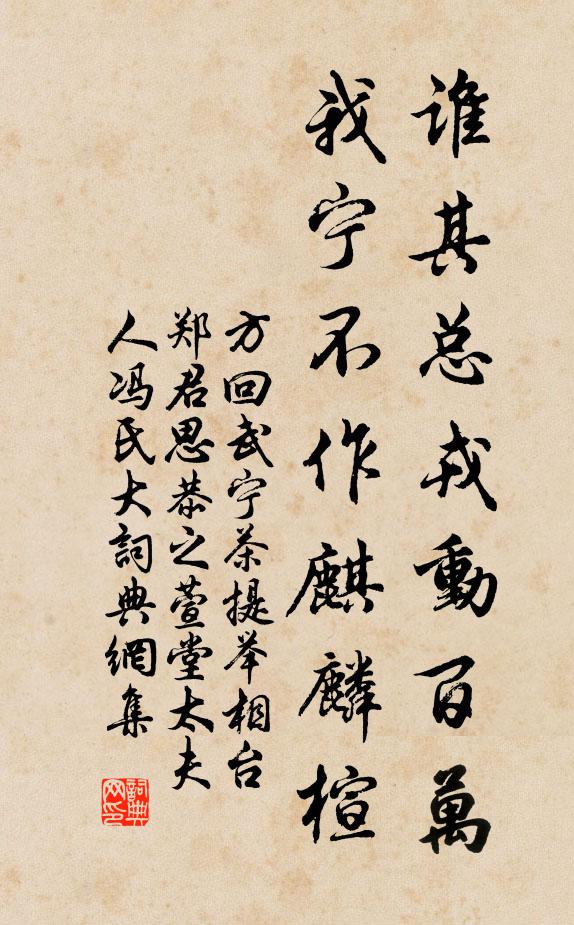 谁其总戎動百萬
我宁不作麒麟楦
方回武宁茶提举相台
郑君思恭之萱堂太夫
人冯氏大詞典網集
詞典网印